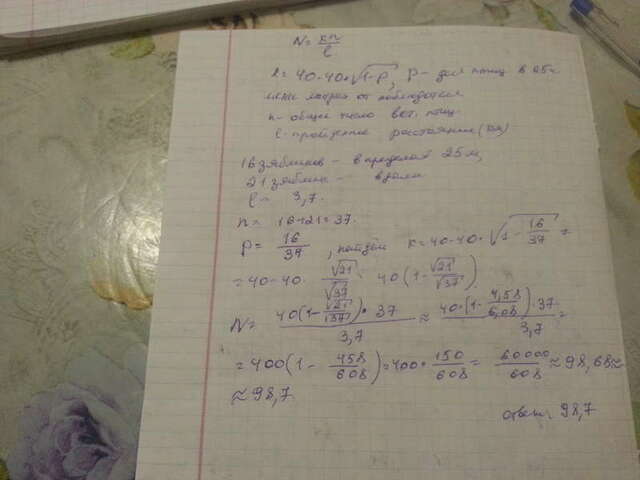 N = kn/l
k = 40-40·√(1-p), p - доля птиц в 25м
n - общее число вст. птиц.
l - пройденное расстояние (км)
16 зябликов - в пределах 25 м,
21 зяблик - вдали
l = 3,7.
n = 16+21 = 37.
p = 16/37, найдём k = 40-40·√(1-16/37) =
= 40-40·√21/√37 = 40(1-√21/√37)
N = 40(1-√21/√37)·37/3,7 ≈ 40·(1-4,58/6,08)·37/3,7 =
= 400(1-458/608) = 400·150/608 = 60000/608 ≈ 98,68 ≈
≈ 98,7
Ответ: 98,7